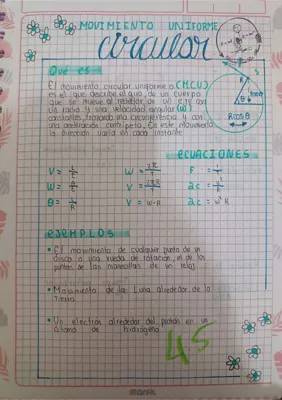 MOVIMIENTO UNIFORME
circular
Qué es
El movimiento circular uniforme o (M.C.U)
es el que describe el giro de un cuerpo
que se mueve al rededor de un eje con
un radio y una velocidad angular (ω)
constantes, trazando una circunferencia y con
una aceleración centrípeta. En este movimiento
la dirección varía en cada instante
R
θ
R cos θ
ECUACIONES
V = W = F =
W = V = ac =
θ = V = W·R ac = W² R
EJEMPLOS
• El movimiento de cualquier punto de un
disco o una rueda de rotación, el de los
puntos de las manecillas de un reloj
• Movimiento de la Luna alrededor de la
Tierra.
• Un electrón alrededor del protón en un
átomo de hidrógeno
45